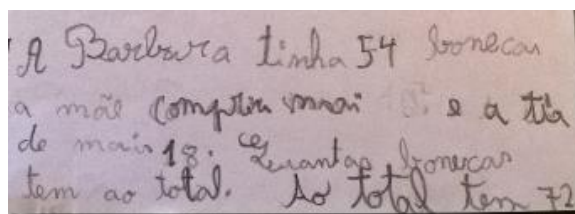 A Barbara tinha 54 bonecas
a mãe comprou mai e a tia
de mais 18. Quantas bonecas
tem ao total. Ao total tem 72